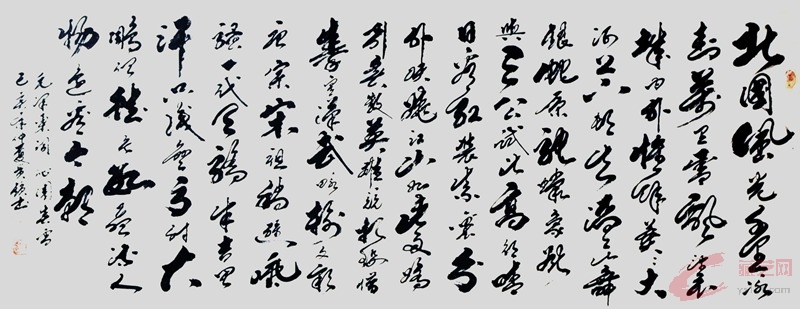 北國風光千里冰
封萬里雪飄望長
城內外惟餘莽々大
河上下頓失滔々山舞
銀蛇原馳蠟象欲
與天公試比高須晴
日看紅裝素裹分
外妖嬈江山如此多嬌
引無數英雄競折腰惜
秦皇漢武略輸文彩
唐宗宋祖稍遜風
騷一代天驕成吉思
汗只識彎弓射大
鵰俱往矣數風流人
物還看今朝
毛澤東詞沁園春雪
年仲夏書